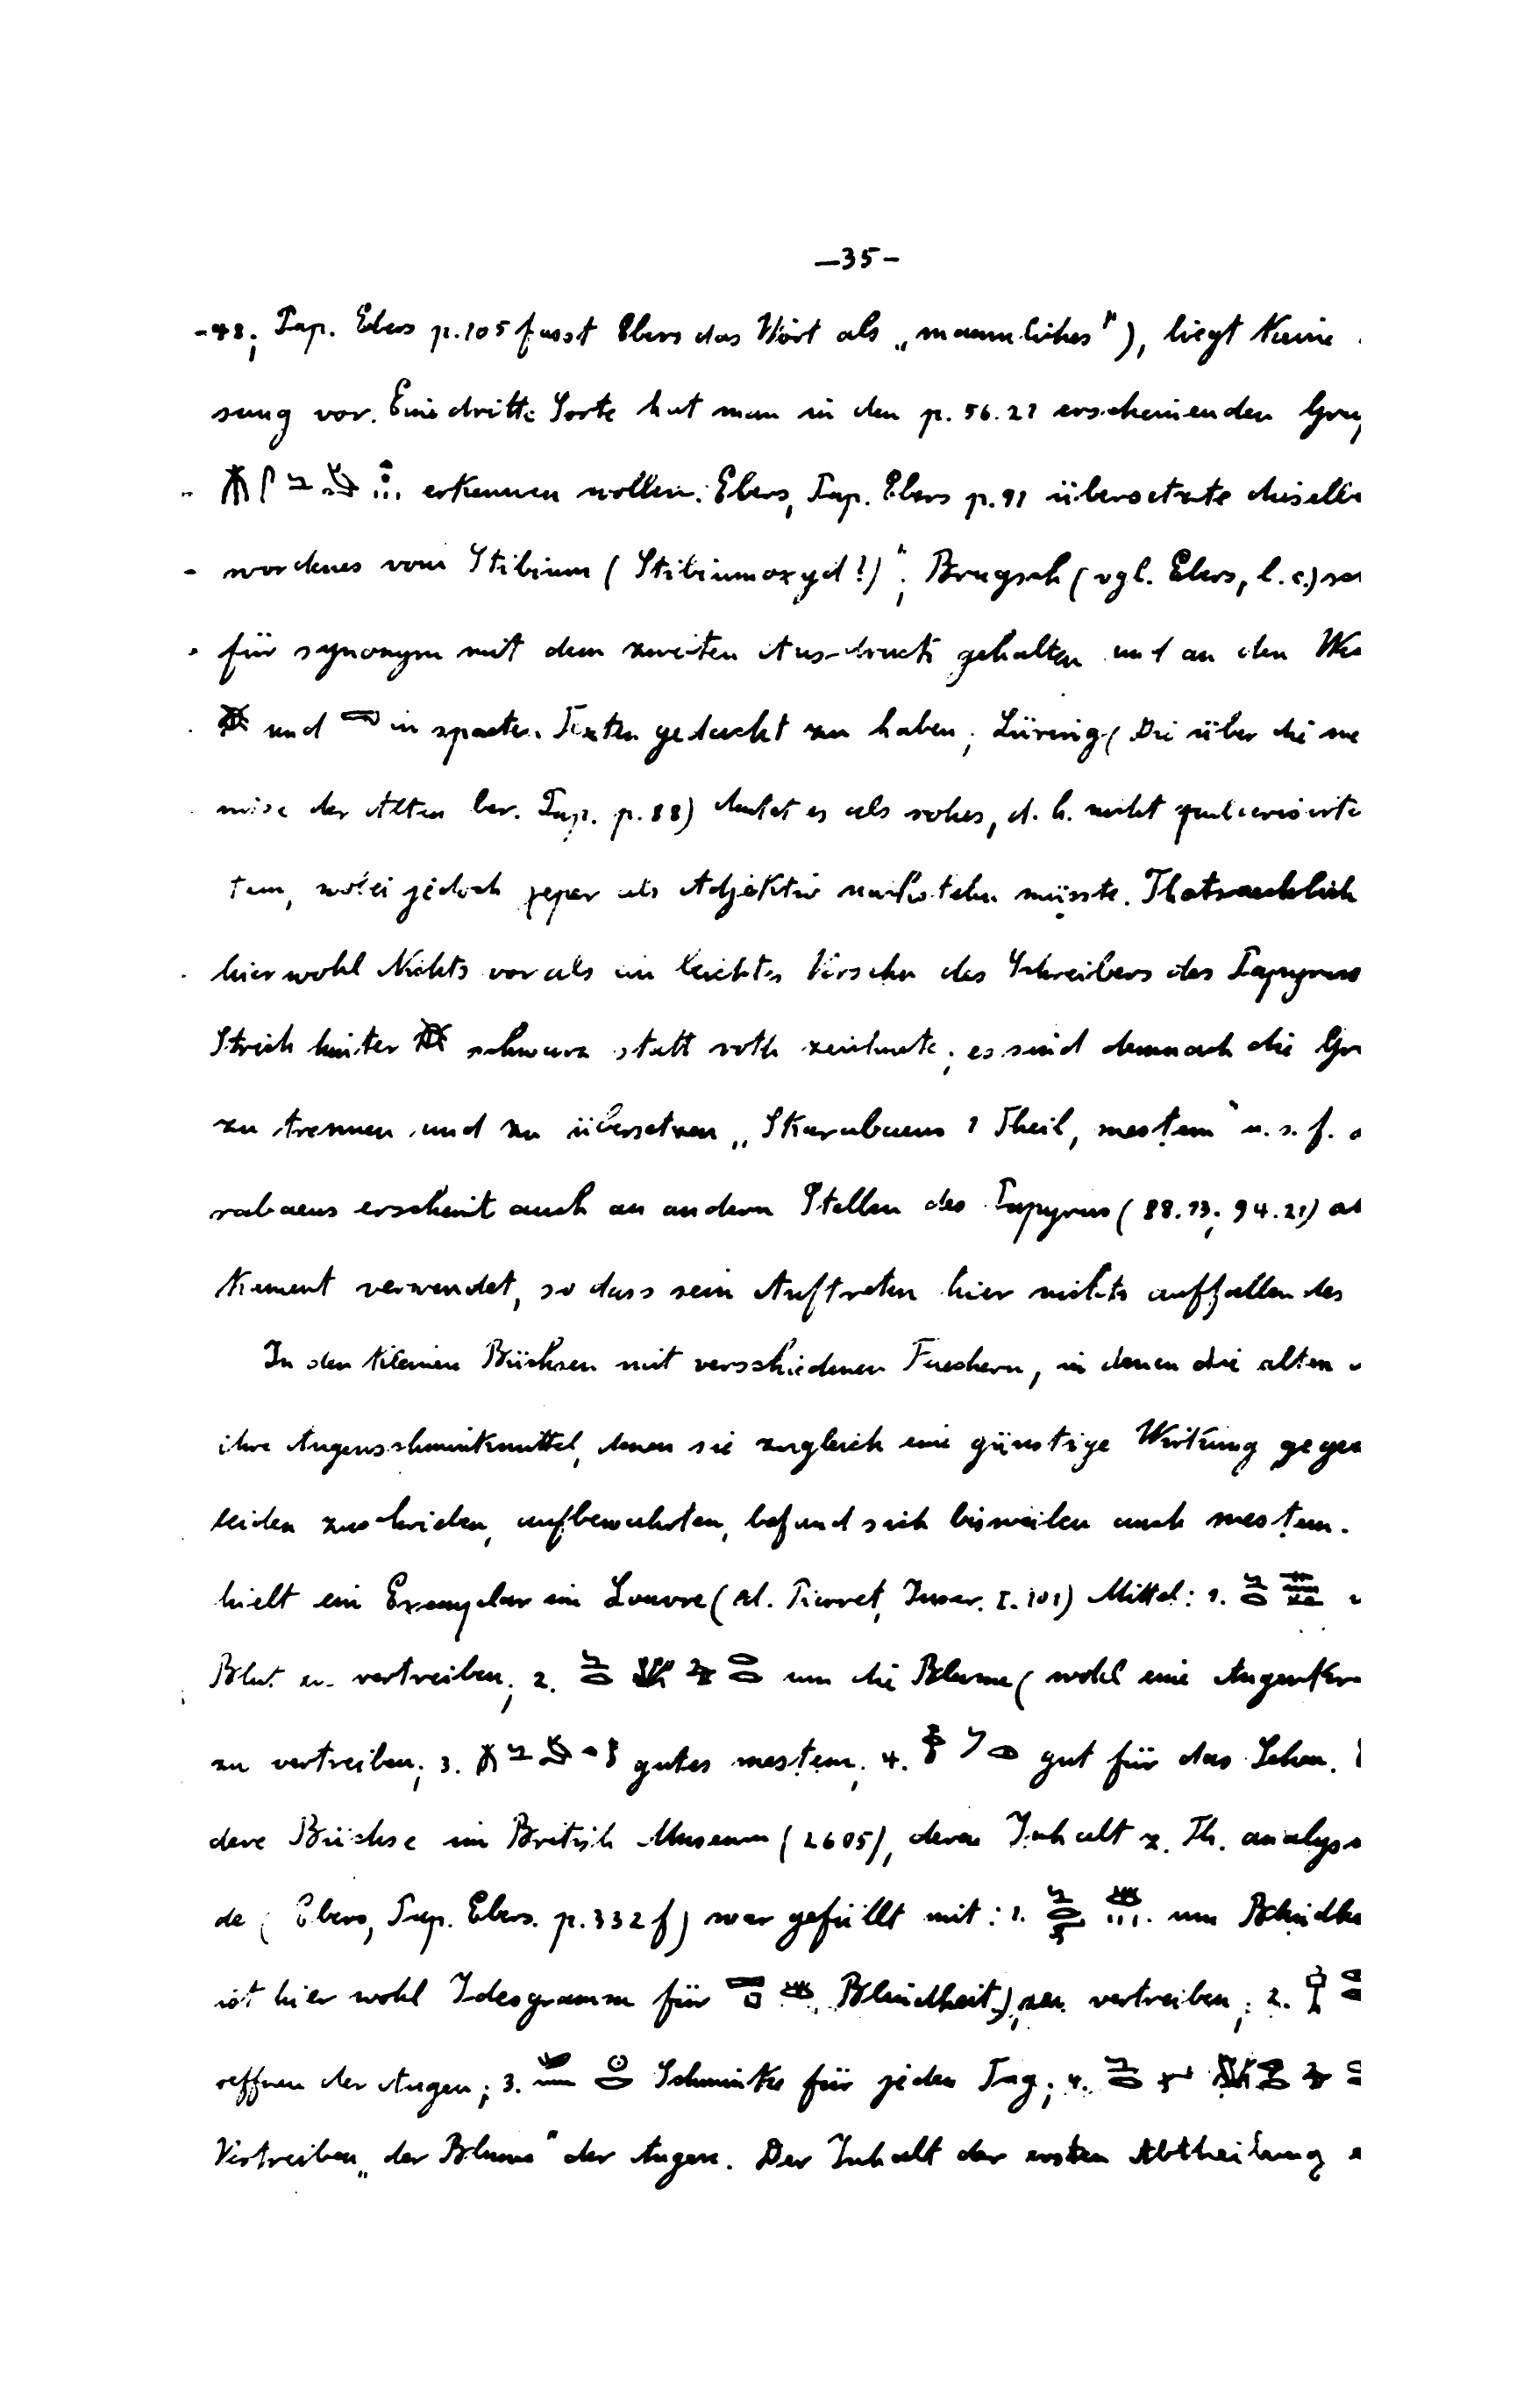 —35—
-48; Pap. Ebers p. 105 fasst Ebers das Wort als „maennliches"), liegt keine
sung vor. Eine dritte Sorte hat man in den p. 56. 21 erscheinenden Grup
erkennen wollen. Ebers, Pap. Ebers p. 91 übersetzte dieselbe
wordenes vom Stibium (Stibiumoxyd?)"; Brugsch (vgl. Ebers, l. c.)
für synonym mit dem zweiten Ausdruck gehalten und an den
und in spaeten Texten gedacht zu haben; Lüring (Die über die me
mise der Alten ber. Pap. p. 88) deutet es als rohes, d. h. nicht pulverisirte
tem, wobei jedoch χeper als Adjektiv nachstehn müsste. Thatsaechlich
hier wohl Nichts vor als ein leichtes Versehn des Schreibers des Papyrus
Strich hinter schwarz statt roth zeichnete; es sind demnach die Gr
zu trennen und zu übersetzen „Skarabaeus 1 Theil, mesṭem" u. s. f.
rabaeus erscheint auch an andern Stellen des Papyrus (88. 13; 94. 21) al
kament verwendet, so dass sein Auftreten hier nichts auffallendes
In den kleinen Büchsen mit verschiedenen Faechern, in denen die alten
ihre Augenschminkmittel, denen sie zugleich eine günstige Wirkung gegen
leiden zuschrieben, aufbewahrten, befand sich bisweilen auch mesṭem.
hielt ein Exemplar im Louvre (ed. Pierret, Inscr. I. 101) Mittel: 1.
Blut zu vertreiben; 2. um die Blume (wohl eine Augenkra
zu vertreiben; 3. gutes mesṭem; 4. gut für das Sehen.
dere Büchse im British Museum (2605), deren Inhalt z. Th. analys
de (Ebers, Pap. Ebers. p. 332 f) war gefüllt mit: 1. um Blindhe
ist hier wohl Ideogramm für Blindheit) zu vertreiben; 2.
oeffnen der Augen; 3. Schminke für jeden Tag; 4.
Vertreiben „der Blume" der Augen. Der Inhalt der ersten Abtheilung